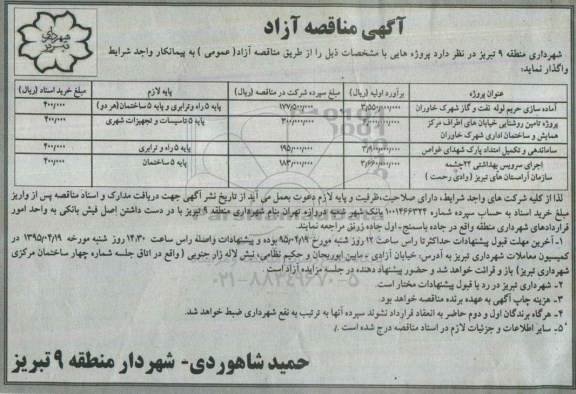 آگهی مناقصه آزاد
شهرداری تبریز
شهرداری منطقه ۹ تبریز در نظر دارد پروژه هایی با مشخصات ذیل را از طریق مناقصه آزاد( عمومی ) به پیمانکار واجد شرایط
واگذار نماید:
عنوان پروژه برآورد اولیه (ریال) مبلغ سپرده شرکت در مناقصه (ریال) پایه لازم مبلغ خرید اسناد (ریال)
آماده سازی حریم لوله نفت و گاز شهرک خاوران ۳,۵۵۰,۰۰۰,۰۰۰ ۱۷۷/۵۰۰/۰۰۰ پایه ۵ راه وترابری و پایه ۵ ساختمان(هر دو) ۴۰۰/۰۰۰
پروژه تامین روشنایی خیابان های اطراف مرکز
همایش و ساختمان اداری شهرک خاوران ۶,۰۰۰,۰۰۰,۰۰۰ ۳۰۰/۰۰۰/۰۰۰ پایه ۵ تاسیسات و تجهیزات شهری ۴۰۰/۰۰۰
ساماندهی و تکمیل امتداد پارک شهدای غواص ۳,۹۰۰,۰۰۰,۰۰۰ ۱۹۵/۰۰۰/۰۰۰ پایه ۵ راه و ترابری ۴۰۰/۰۰۰
اجرای سرویس بهداشتی ۲۲چشمه
سازمان آراستان های تبریز ( وادی رحمت ) ۳,۶۶۰,۰۰۰,۰۰۰ ۱۸۳/۰۰۰/۰۰۰ پایه ۵ ساختمان ۴۰۰/۰۰۰
لذا از کلیه شرکت های واجد شرایط، دارای صلاحیت،ظرفیت و پایه لازم دعوت بعمل می آید از تاریخ نشر آگهی جهت دریافت مدارک و اسناد مناقصه پس از واریز
مبلغ خرید اسناد به حساب سپرده شماره ۱۰۰۱۴۶۶۳۲۴ بانک شهر شعبه دروازه تهران بنام شهرداری منطقه ۹ تبریز با در دست داشتن اصل فیش بانکی به واحد امور
قراردادهای شهرداری منطقه واقع در جاده باسمنج - اول جاده زرنق مراجعه نمایند.
۱- آخرین مهلت قبول پیشنهادات حداکثر تا راس ساعت ۱۲ روز شنبه مورخ ۹۵/۰۴/۱۹ بوده و پیشنهادات واصله راس ساعت ۱۴:۳۰ روز شنبه مورخه ۱۳۹۵/۰۴/۱۹ در
کمیسیون معاملات شهرداری تبریز به آدرس: خیابان آزادی - مابین ابوریحان و حکیم نظامی، نبش لاله زار جنوبی ( واقع در اتاق جلسه شماره چهار ساختمان مرکزی
شهرداری تبریز) باز و قرائت خواهد شد و حضور پیشنهاد دهنده در جلسه مزایده آزاد است.
۲- شهرداری تبریز در رد یا قبول پیشنهادات مختار است.
۳- هزینه چاپ آگهی به عهده برنده مناقصه خواهد بود.
۴- هرگاه برندگان اول و دوم حاضر به انعقاد قرارداد نشوند سپرده آنها به ترتیب به نفع شهرداری ضبط خواهد شد.
۵- سایر اطلاعات و جزئیات لازم در اسناد مناقصه درج شده است.
حمید شاهوردی- شهردار منطقه ۹ تبریز
۰۲۱-۸۸۳۴۹۶۷۰-۵